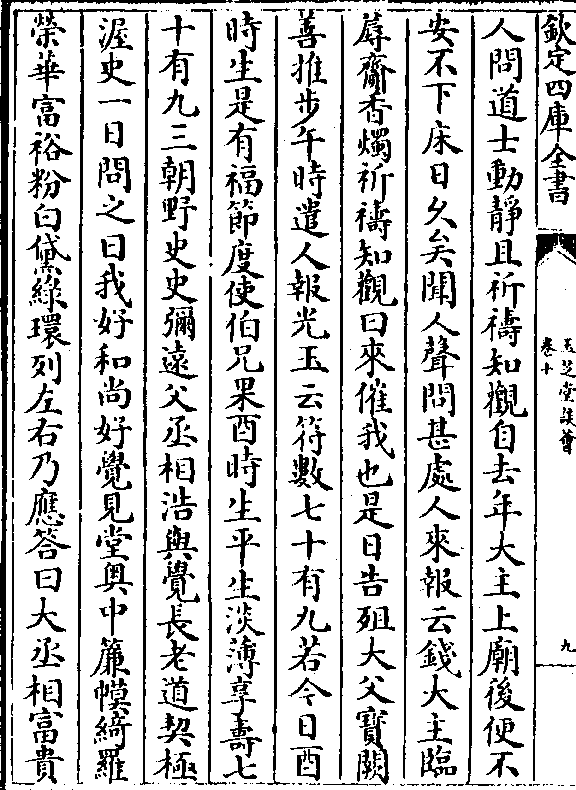 欽定四庫全書
玉芝堂談薈
卷十
九
人問道士動靜且祈禱知觀自去年大主上廟後便不
安不下床日久矣聞人聲問甚處人來報云錢大主臨
蓐齋香燭祈禱知觀曰來催我也是日告殂大父寳閣
善推步午時遣人報光玉云符數七十有九若今日酉
時生是有福節度使伯兄果酉時生平生淡薄享壽七
十有九三朝野史史彌遠父丞相浩與覺長老道契極
渥史一日問之曰我好和尚好覺見堂奥中簾幙綺羅
榮華富裕粉白黛綠環列左右乃應答曰大丞相富貴